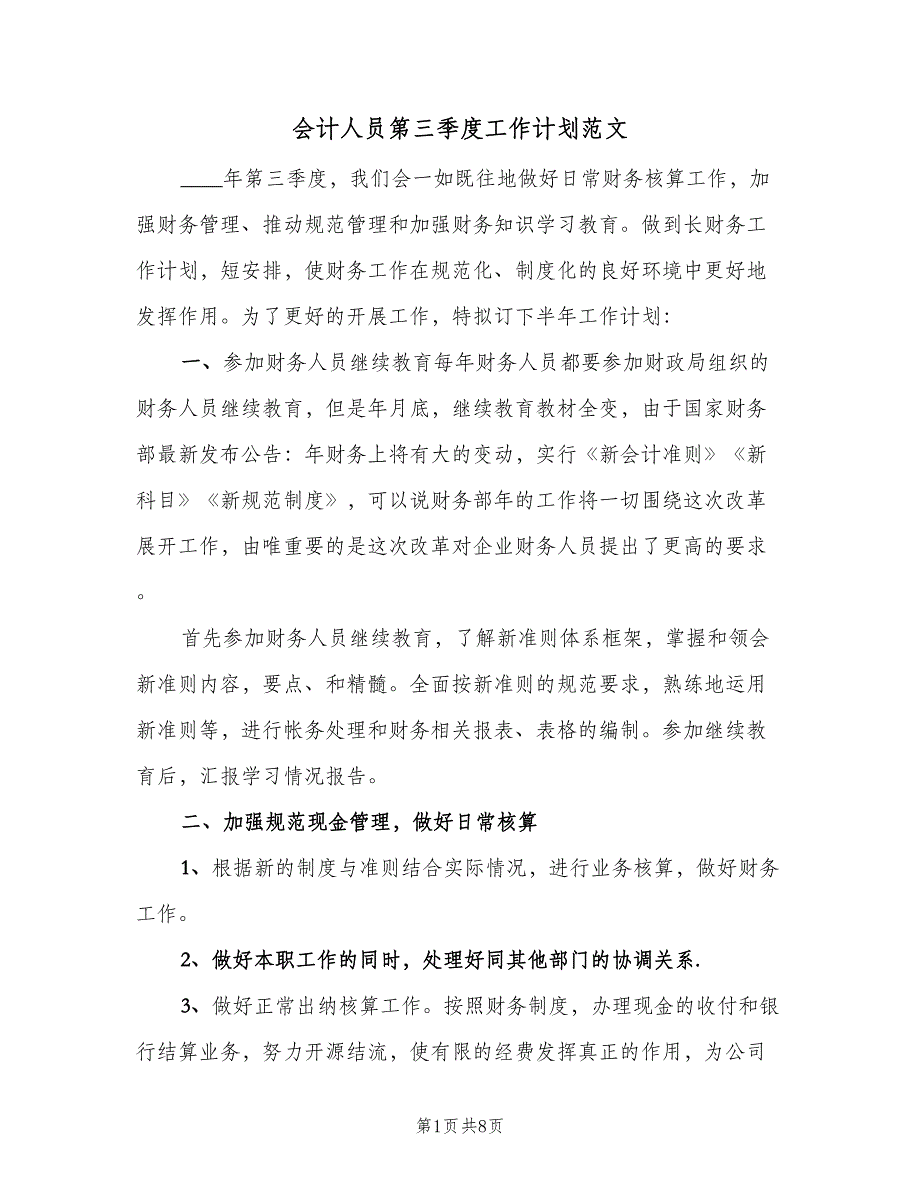 会计人员第三季度工作计划范文
____年第三季度，我们会一如既往地做好日常财务核算工作，加
强财务管理、推动规范管理和加强财务知识学习教育。做到长财务工
作计划，短安排，使财务工作在规范化、制度化的良好环境中更好地
发挥作用。为了更好的开展工作，特拟订下半年工作计划：
一、参加财务人员继续教育每年财务人员都要参加财政局组织的
财务人员继续教育，但是年月底，继续教育教材全变，由于国家财务
部最新发布公告：年财务上将有大的变动，实行《新会计准则》《新
科目》《新规范制度》，可以说财务部年的工作将一切围绕这次改革
展开工作，由唯重要的是这次改革对企业财务人员提出了更高的要求
。
首先参加财务人员继续教育，了解新准则体系框架，掌握和领会
新准则内容，要点、和精髓。全面按新准则的规范要求，熟练地运用
新准则等，进行帐务处理和财务相关报表、表格的编制。参加继续教
育后，汇报学习情况报告。
二、加强规范现金管理，做好日常核算
1、根据新的制度与准则结合实际情况，进行业务核算，做好财务
工作。
2、做好本职工作的同时，处理好同其他部门的协调关系.
3、做好正常出纳核算工作。按照财务制度，办理现金的收付和银
行结算业务，努力开源结流，使有限的经费发挥真正的作用，为公司
第1页 共8页